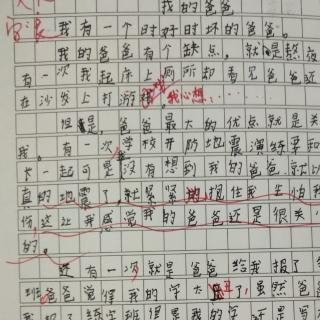 我的爸爸
我有一个时好时坏的爸爸。
我的爸爸有个缺点，就是熬夜
有一次我起床上厕所却看见爸爸还
在沙发上打游 我心想：……
但是，爸爸最大的优点就是关
我。有一次，学校开防地震演练要和
大一起可是没有想到我的爸爸就以
真的地震了，就紧紧 抱住我生怕我
伤这让我感觉我的爸爸还是很关
的。
还有一次就是爸爸给我报了
班爸爸觉得我的字大 了，虽然爸爸